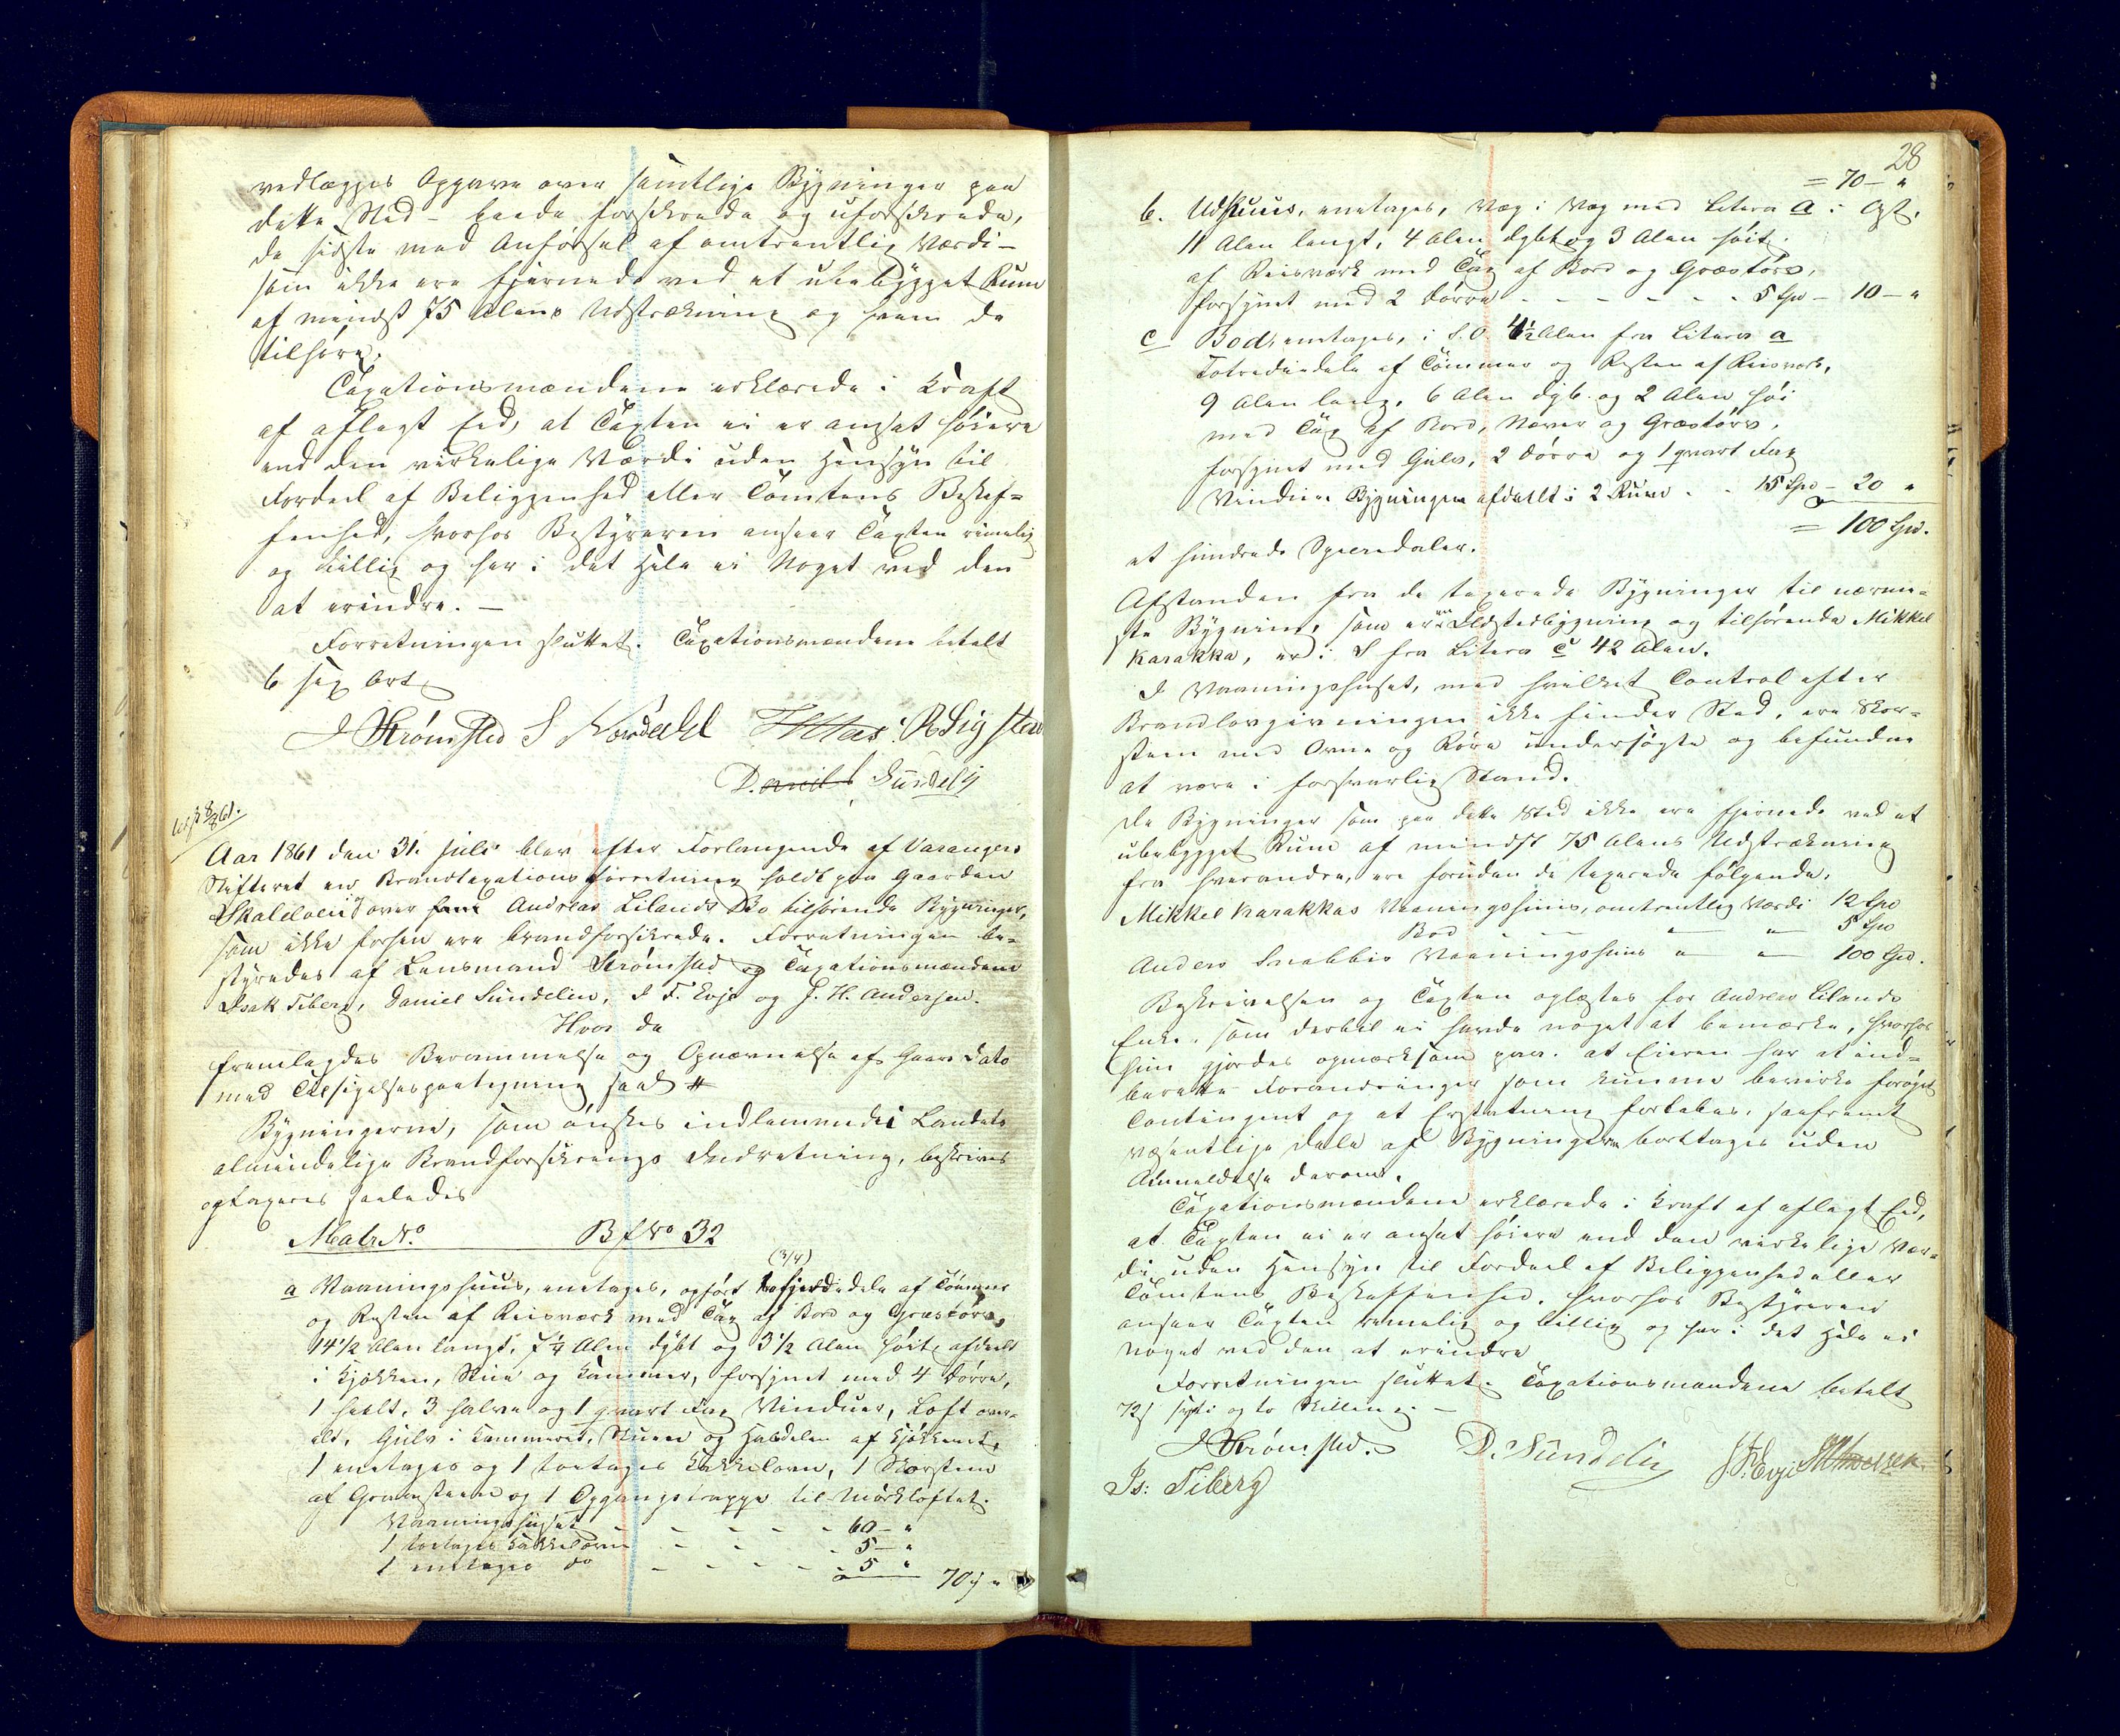 vedlægges Opgave over samtlige Bygninger paa
dette Sted – baade forsikrede og uforsikrede,
de sidste med Anførsel af omtrentlig Værdi –
som ikke ere fjernede ved et ubebygget Rum
af mindst 75 Alens Udstrækning og hvem de
tilhøre.
Taxationsmændene erklærede i Kraft
af aflagt Eed, at Taxten ei er ansat høiere
end den virkelige Værdi uden Hensyn til
Fordeel af Beliggenhed eller Tomtens Beskaf=
fenhed, hvorhos Bestyreren anseer Taxten rimelig
og billig og har i det Hele ei Noget ved den
at erindre. –
Forretningen sluttet. Taxationsmændene betalt
6 sex Ort
J Strømsted S Nordahl
Daniel Sundelin
Aar 1861 den 31. Juli blev efter Forlangende af Varangers
Skifteret en Brandtaxationsforretning holdt paa Gaarden
over Andreas Lilands Bo tilhørende Bygninger,
som ikke forhen ere brandforsikrede. Forretningen be=
styredes af Lensmand Strømsted og Taxationsmændene
Isak Tiberg, Daniel Sundelin, J. F. Evje og J. H. Andersen.
Hvor da
fremlagdes Berammelse og Opnævnelse af Gaars Dato
med Tilsigelsespaategning saal #
Bygningerne, som ønskes indlemmede i Landets
almindelige Brandforsikrings Indretning, beskrives
og taxeres saaledes
Matr. No. Bf No 32
(3/4)
a Vaaningshuus, eenetages, opført trefjerdedele af Tømmer
og Resten af Reisværk med Tag af Bord og Græstørv,
14 1/2 Alen langt, 7 1/4 Alen dybt og 3 1/2 Alen høit, afdeelt
i Kjøkken, Stue og Kammer, forsynet med 4 Dørre,
1 heelt, 3 halve og 1 qvart Fag Vinduer, Loft over=
alt, Gulv i Kammeret, Stuen og Halvdelen af Kjøkkenet,
1 eenetages og 1 toetages Kakkelovn, 1 Skorsteen
af Graasteene og 1 Opgangstrappe til Mørkloftet.
Vaaningshuset - - - - - 60 – "
1 toetages Kakkelovn - - - - 5 – "
1 eenetages do - - - - - 5 "
70 „ "
28
= 70 – "
b. Udhuus, eenetages, Væg i Væg med Litera a i Øst,
11 Alen langt, 4 Alen dybt og 3 Alen høit
af Reisværk med Tag af Bord og Græstørv,
forsynet med 2 Dørre - - - - - - 5 Spd – 10 – "
c Bod, eenetages, i S.O. 4 1/2 Alen fra Litera a
Totrediedele af Tømmer og Resten af Reisværk,
9 Alen lang, 6 Alen dyb og 2 Alen høi
med Tag af Bord, Næver og Græstørv,
forsynet med Gulv, 2 Dørre og 1 qvart Fag
Vindue. Bygningen afdeelt i 2 Rum - - 15 Spd – 20 "
= 100 Spd.
et hundrede Speciedaler.
Afstanden fra de taxerede Bygninger til nærme=
ste Bygning, som er en Ildstedbygning og tilhørende Mikkel
Karakka, er i S fra Litera c 42 Alen.
I Vaaningshuset, med hvilket Control efter
Brandlovgivningen ikke finder Sted, ere Skor=
steen med Ovne og Røre undersøgte og befundne
at være i forsvarlig Stand.
De Bygninger som paa dette Sted ikke ere fjernede ved et
ubebygget Rum af mindst 75 Alens Udstrækning
fra hverandre, ere foruden de taxerede følgende,
Mikkel Karakkas Vaaningshuus, omtrentlig Værdi 12 Spd
Bod - - " " 5 Spd
Anders Vaaningshuus " " 100 Spd.
Beskrivelsen og Taxten oplæstes for Andreas Lilands
Enke, som dertil ei havde noget at bemærke, hvorhos
hun gjordes opmærksom paa, at Eieren har at ind=
berette Forandringer som kunne bevirke forøget
Contingent og at Erstatning fortabes, saafremt
væsentlige Dele af Bygningerne borttages uden
Anmeldelse derom.
Taxationsmændene erklærede i Kraft af aflagt Eed,
at Taxten ei er ansat høiere end den virkelige Vær=
di uden Hensyn til Fordeel af Beliggenhed eller
Tomtens Beskaffenhed, hvorhos Bestyreren
anseer Taxten rimelig og billig og har i det Hele ei
noget ved den at erindre
Forretningen sluttet. Taxationsmændene betalt
72 s sytti og to Skilling. –
J Strømsted. D. Sundelin J F. Evje
Is: Tiberg